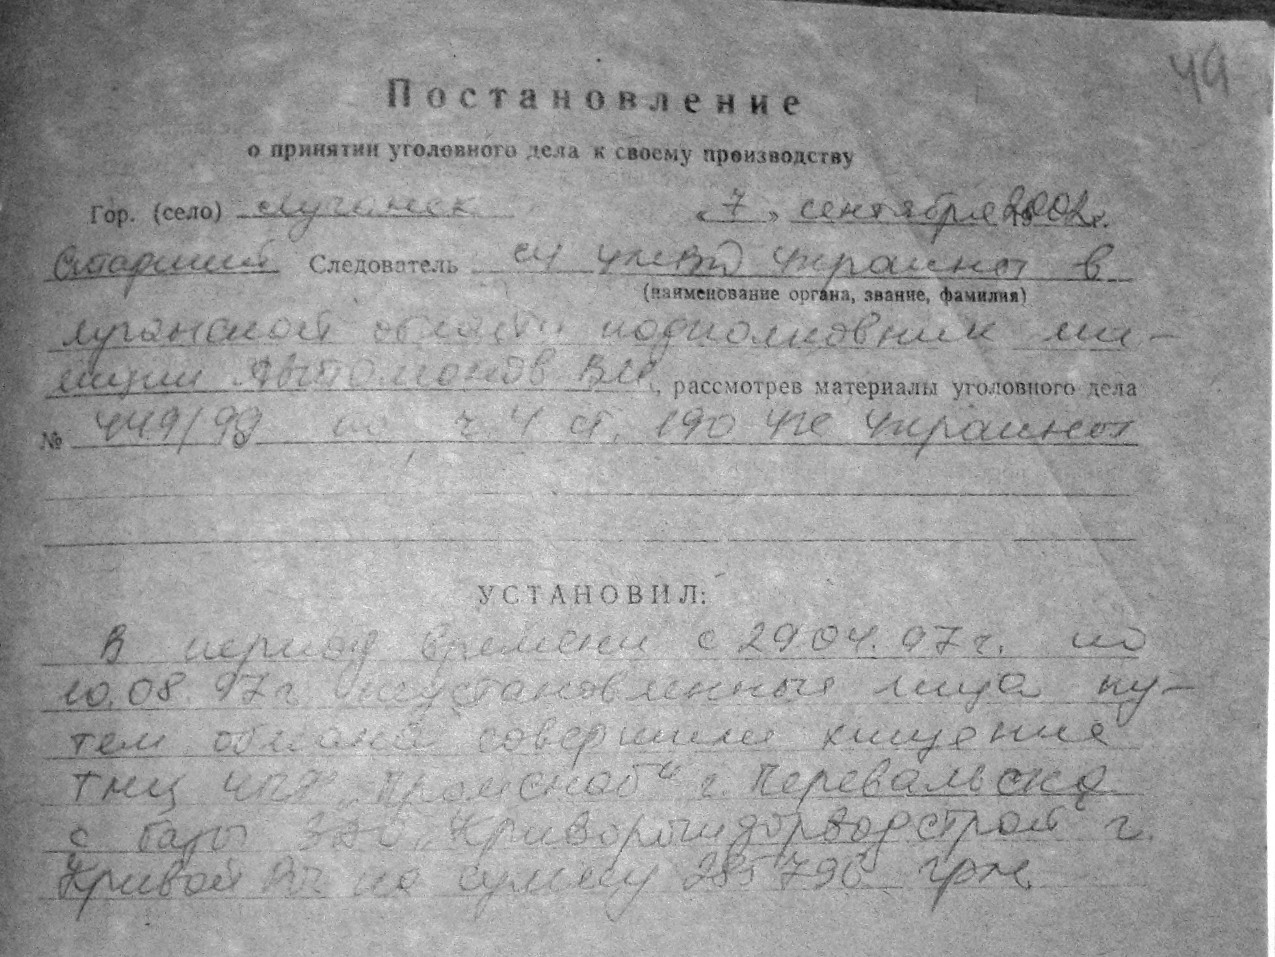 49
Постановление
о принятии уголовного дела к своему производству
Гор. (село) Луганск „7" сентября 2002г.
Старший Следователь СУ УМВД Украины в
(наименование органа, звание, фамилия)
Луганской области подполковник ми-
лиции Автомонов В.И., рассмотрев материалы уголовного дела
№ 449/99 по ч. 4 ст. 190 УК Украины
УСТАНОВИЛ:
В период времени с 29.04.97г. по
10.08.97г неустановленные лица пу-
тем обмана совершили хищение
ТМЦ ЧПФ „Промснаб" г. Перевальска
с базы ЗАО „Криворожгидроводстрой г.
Кривой Рог на сумму 285796 грн.